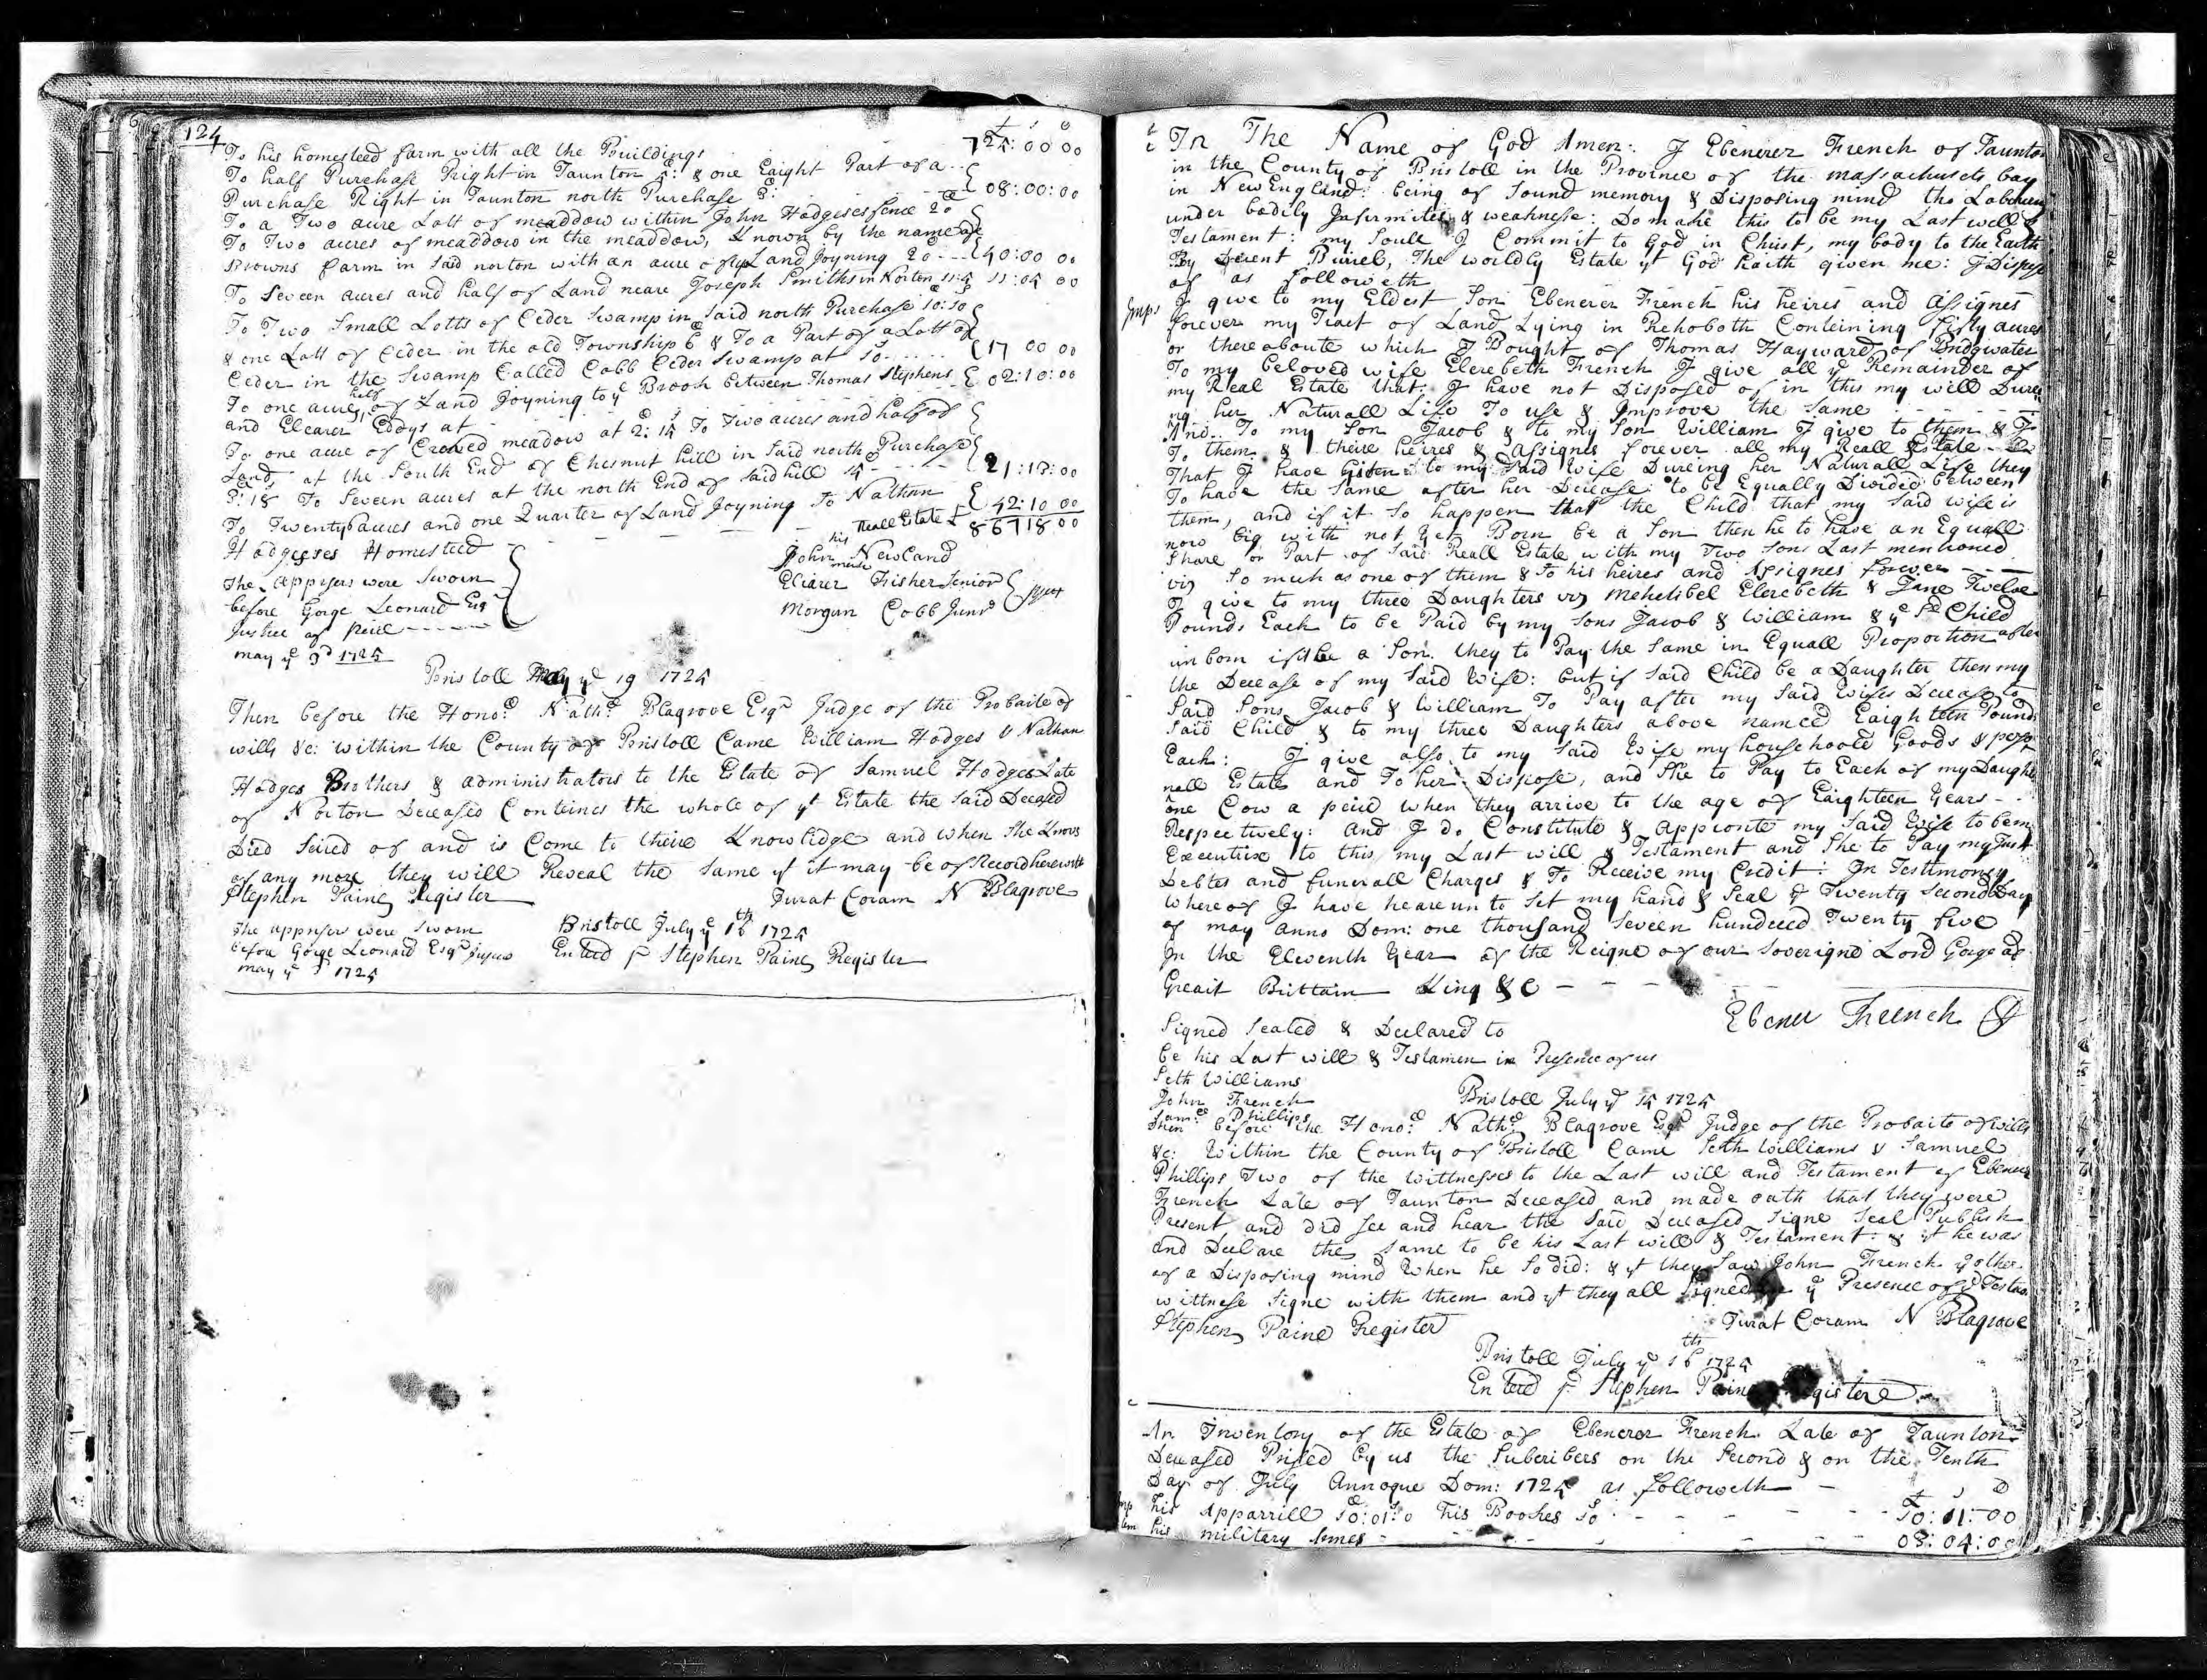 124
£ s d
To his homesteed farm with all the Buildings 725:00 00
To half Purchase Right in Taunton 5: & one Eaight Part of a
Purchase Right in Taunton north Purchase 3: 08:00:00
To a Two acre Lott of meaddow within John Hodgeses fence 20
To Two acres of meaddow in the meaddow, known by the name of
Browns farm in said norton with an acre of Land Joyning 20 40:00 00
To Seveen acres and half of Land neare Joseph Smiths in Norton 11:5 11:05 00
To Two Small Lotts of Ceder Swamp in said north Purchase 10:10
& one Lott of Ceder in the old Township 6 & To a Part of a Lott of
Ceder in the Swamp Called Cobb Ceder Swamp at 10 17 00 00
To one acre half of Land Joyning to ye Brook between Thomas Stephens 02:10:00
and Elearer Edys at
To one acre of Crooked meadow at 2:15 To Two acres and half of
Land at the South End of Chesnut hill in said north Purchase
3:18 To Seveen acres at the north End of said hill 15 21:13:00
To Twenty acres and one Quarter of Land Joyning To Nathan 42:10 00
Hodgeses Homesteed Reall Estate £ 867 18 00
The Apprisers were Sworn
before Gorge Leonard Esqr
Justice of Peice
may ye 3d 1725
John his mark Newland
Eliazer Fisher Senior
Morgan Cobb Junr
Bristoll May ye 19 1725
Then before the Honod Nathll Blagrove Esqr Judge of the Probaite of
wills &c: within the County of Bristoll Came William Hodges & Nathan
Hodges Brothers & administrators to the Estate of Samuel Hodges Late
of Norton Deceased Conteines the whole of yt Estate the said Deceased
Died Seired of and is Come to theire Knowlidge and when She Knows
of any more they will Reveal the same yt it may be of Record herewith
Stephen Paine Register Jurat Coram N Blagrove
The apprisers were Sworn
before Gorge Leonard Esqr
may ye 3 1725
Bristoll July ye 16th 1725
Entred pr Stephen Paine Register
In The Name of God Amen: I Ebenerer French of Taunton
in the County of Bristoll in the Province of the massachusets bay
in New England: being of sound memory & Disposing mind tho Labouring
under bodily Infirmities & weaknesse: Do make this to be my Last will &
Testament: my Soule I Commit to God in Christ, my body to the Earth
By Decent Buriel, The worldly Estate yt God haith given me: I Dispose
of as followeth
Imps I give to my Eldest Son Ebenerer French his heires and Assignes
forever my Tract of Land Lying in Rehoboth Conteining fifty acres
or thereaboute which I Bought of Thomas Hayward of Bridgwater
To my beloved wife Elerebeth French I give all ye Remainder of
my Real Estate that I have not Disposed of in this my will Dure
ing her Naturall Life To use & Improve the same
And To my Son Jacob & to my Son William I give to them &
To them & theire heires & Assignes forever all my Reall Estate
That I have Given to my said wife Dureing her Naturall Life they
To have the same after her Decease to be Equally Divided between
them, and if it so happen that the Child that my said wife is
now big with not yet Born be a Son then he to have an Equall
Share or Part of said Reall Estate with my Two sons Last mentioned
viz so much as one of them & To his heires and Assignes forever
I give to my three Daughters viz Mehetibel Elerebeth & Jane Twelve
Pounds Each to be Paid by my sons Jacob & William & ye sd Child
unborn if it be a Son. they to Pay the same in Equall Proportion after
the Decease of my said Wife: but if said Child be a Daughter then my
said Sons Jacob & William To Pay after my said wifes Decease to
said Child & to my three Daughters above named Eaighteen Pounds
Each: I give also to my said wife my househoold Goods & perso
nell Estate and To her Dispose, and she to Pay to Each of my Daughters
one Cow a peice when they arrive to the age of Eaighteen Years
Respectively: And I do Constitute & Appionte my said wife to be my
Executrix to this my Last will & Testament and she to Pay my Just
Debtes and funerall Charges & To Receive my Credit: In Testimony
whereof I have heareunto set my hand & Seal ye Twenty second Day
of may anno Dom: one thousand seveen hundred Twenty five
In the Eleventh Year of the Reigne of our Soverigne Lord Gorge of
Greait Brittain King &c
Ebener French
Signed Sealed & Declared to
be his Last will & Testamen in Presence of us
Seth Williams
John French
Samll Phillips
Bristoll July ye 15 1725
Then before the Honod Nathll Blagrove Esqr Judge of the Probaite of wills
&c: Within the County of Bristoll Came Seth Williams & Samuel
Phillips Two of the wittnesses to the Last will and Testament of Ebenerer
French Late of Taunton Deceased and made oath that they were
Present and did see and hear the said Deceased signe Seal Publish
and Declare the same to be his Last will & Testament: & yt he was
of a Disposing mind when he so did: & yt they saw John French ye other
wittnese signe with them and yt they all signed in ye Presence of ye Testa
Stephen Paine Register Jurat Coram N Blagrove
Bristoll July ye 16th 1725
Entred pr Stephen Paine Register
An Inventory of the Estate of Ebenerer French Late of Taunton
Deceased Prised by us the Subcribers on the Second & on the Tenth
Day of July Annoque Dom: 1725 as followeth
£ s D
Imp his Apparrill 10:01:0 his Bookes 10 10:11:00
Itm his military Armes 03:04:00